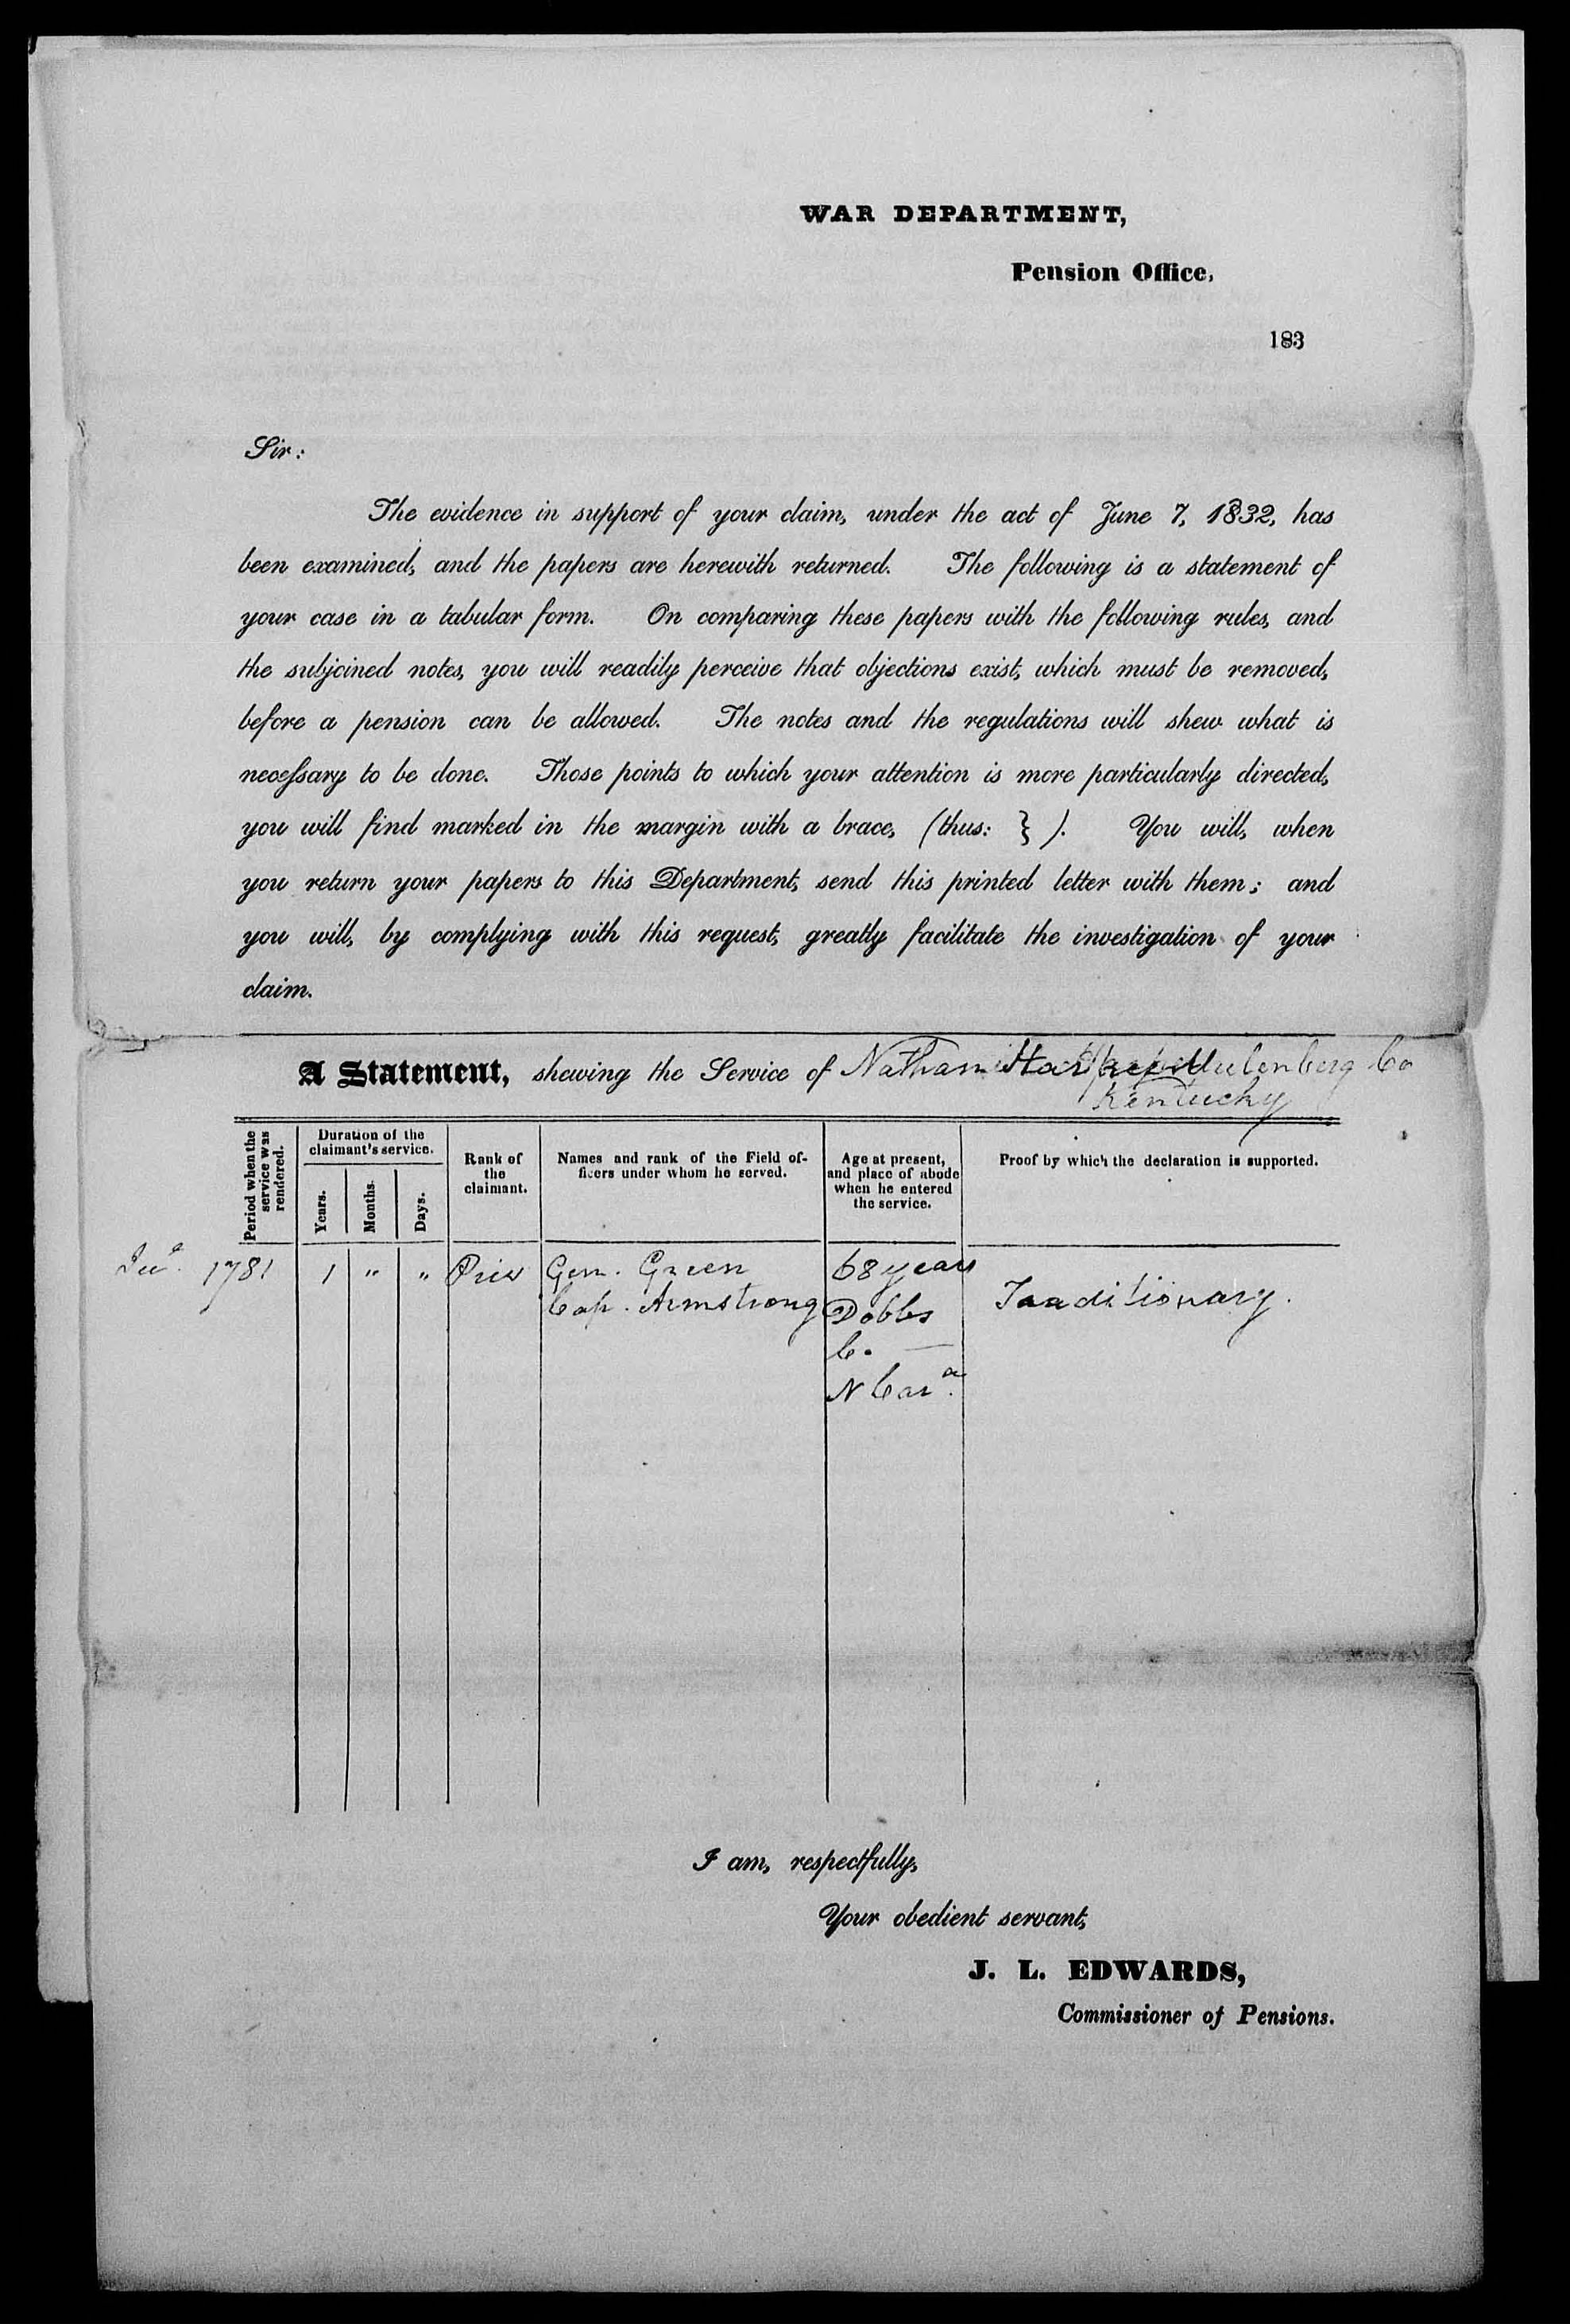 WAR DEPARTMENT,
Pension Office,
183
Sir:
The evidence in support of your claim, under the act of June 7, 1832, has
been examined, and the papers are herewith returned. The following is a statement of
your case in a tabular form. On comparing these papers with the following rules, and
the subjoined notes, you will readily perceive that objections exist, which must be removed,
before a pension can be allowed. The notes and the regulations will shew what is
necessary to be done. Those points to which your attention is more particularly directed,
you will find marked in the margin with a brace, (thus: } ). You will, when
you return your papers to this Department, send this printed letter with them; and
you will, by complying with this request, greatly facilitate the investigation of your
claim.
A Statement, shewing the Service of Nathan Mulenberg Co
Kentucky
Period when the service was rendered.
Duration of the
claimant's service.
Years.
Months.
Days.
Rank of
the
claimant.
Names and rank of the Field of-
ficers under whom he served.
Age at present,
and place of abode
when he entered
the service.
Proof by which the declaration is supported.
1781 1 " " Priv Gen. Green 68 years
Cap. Armstrong Dobbs Traaditionary.
Co.
N Car.a
I am, respectfully,
Your obedient servant,
J. L. EDWARDS,
Commissioner of Pensions.